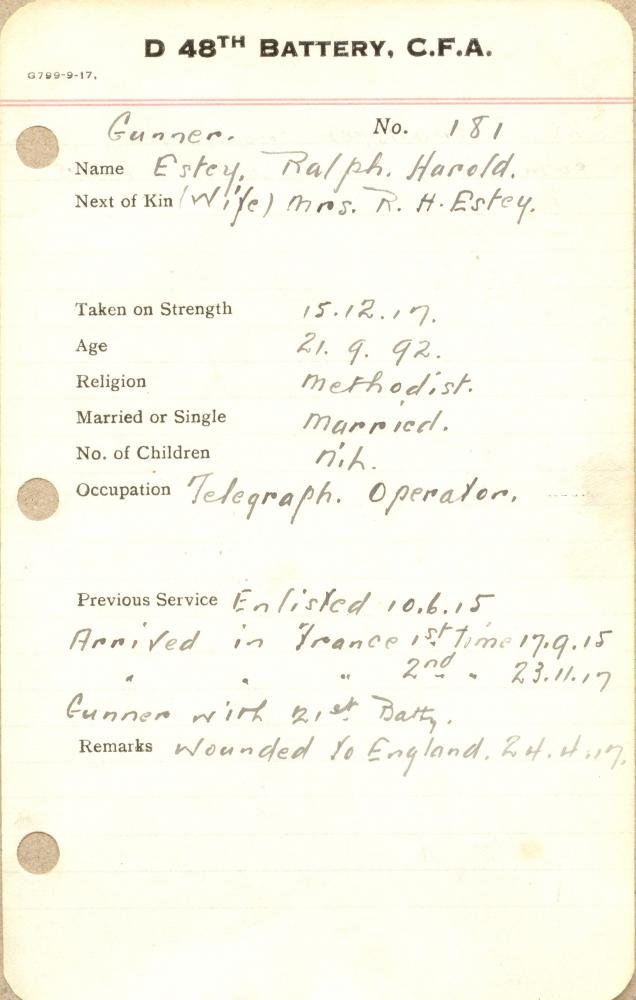 D 48TH BATTERY, C.F.A.
G799-9-17.
Gunner. No. 181
Name Estey, Ralph. Harold.
Next of Kin (Wife) Mrs. R. H. Estey.
Taken on Strength 15.12.17.
Age 21. 9. 92.
Religion Methodist.
Married or Single Married.
No. of Children Nil.
Occupation Telegraph. Operator.
Previous Service Enlisted 10.6.15
Arrived in France 1st Time 17.9.15
" " " 2nd " 23.11.17
Gunner with 21st Batty.
Remarks Wounded to England. 24.4.17.